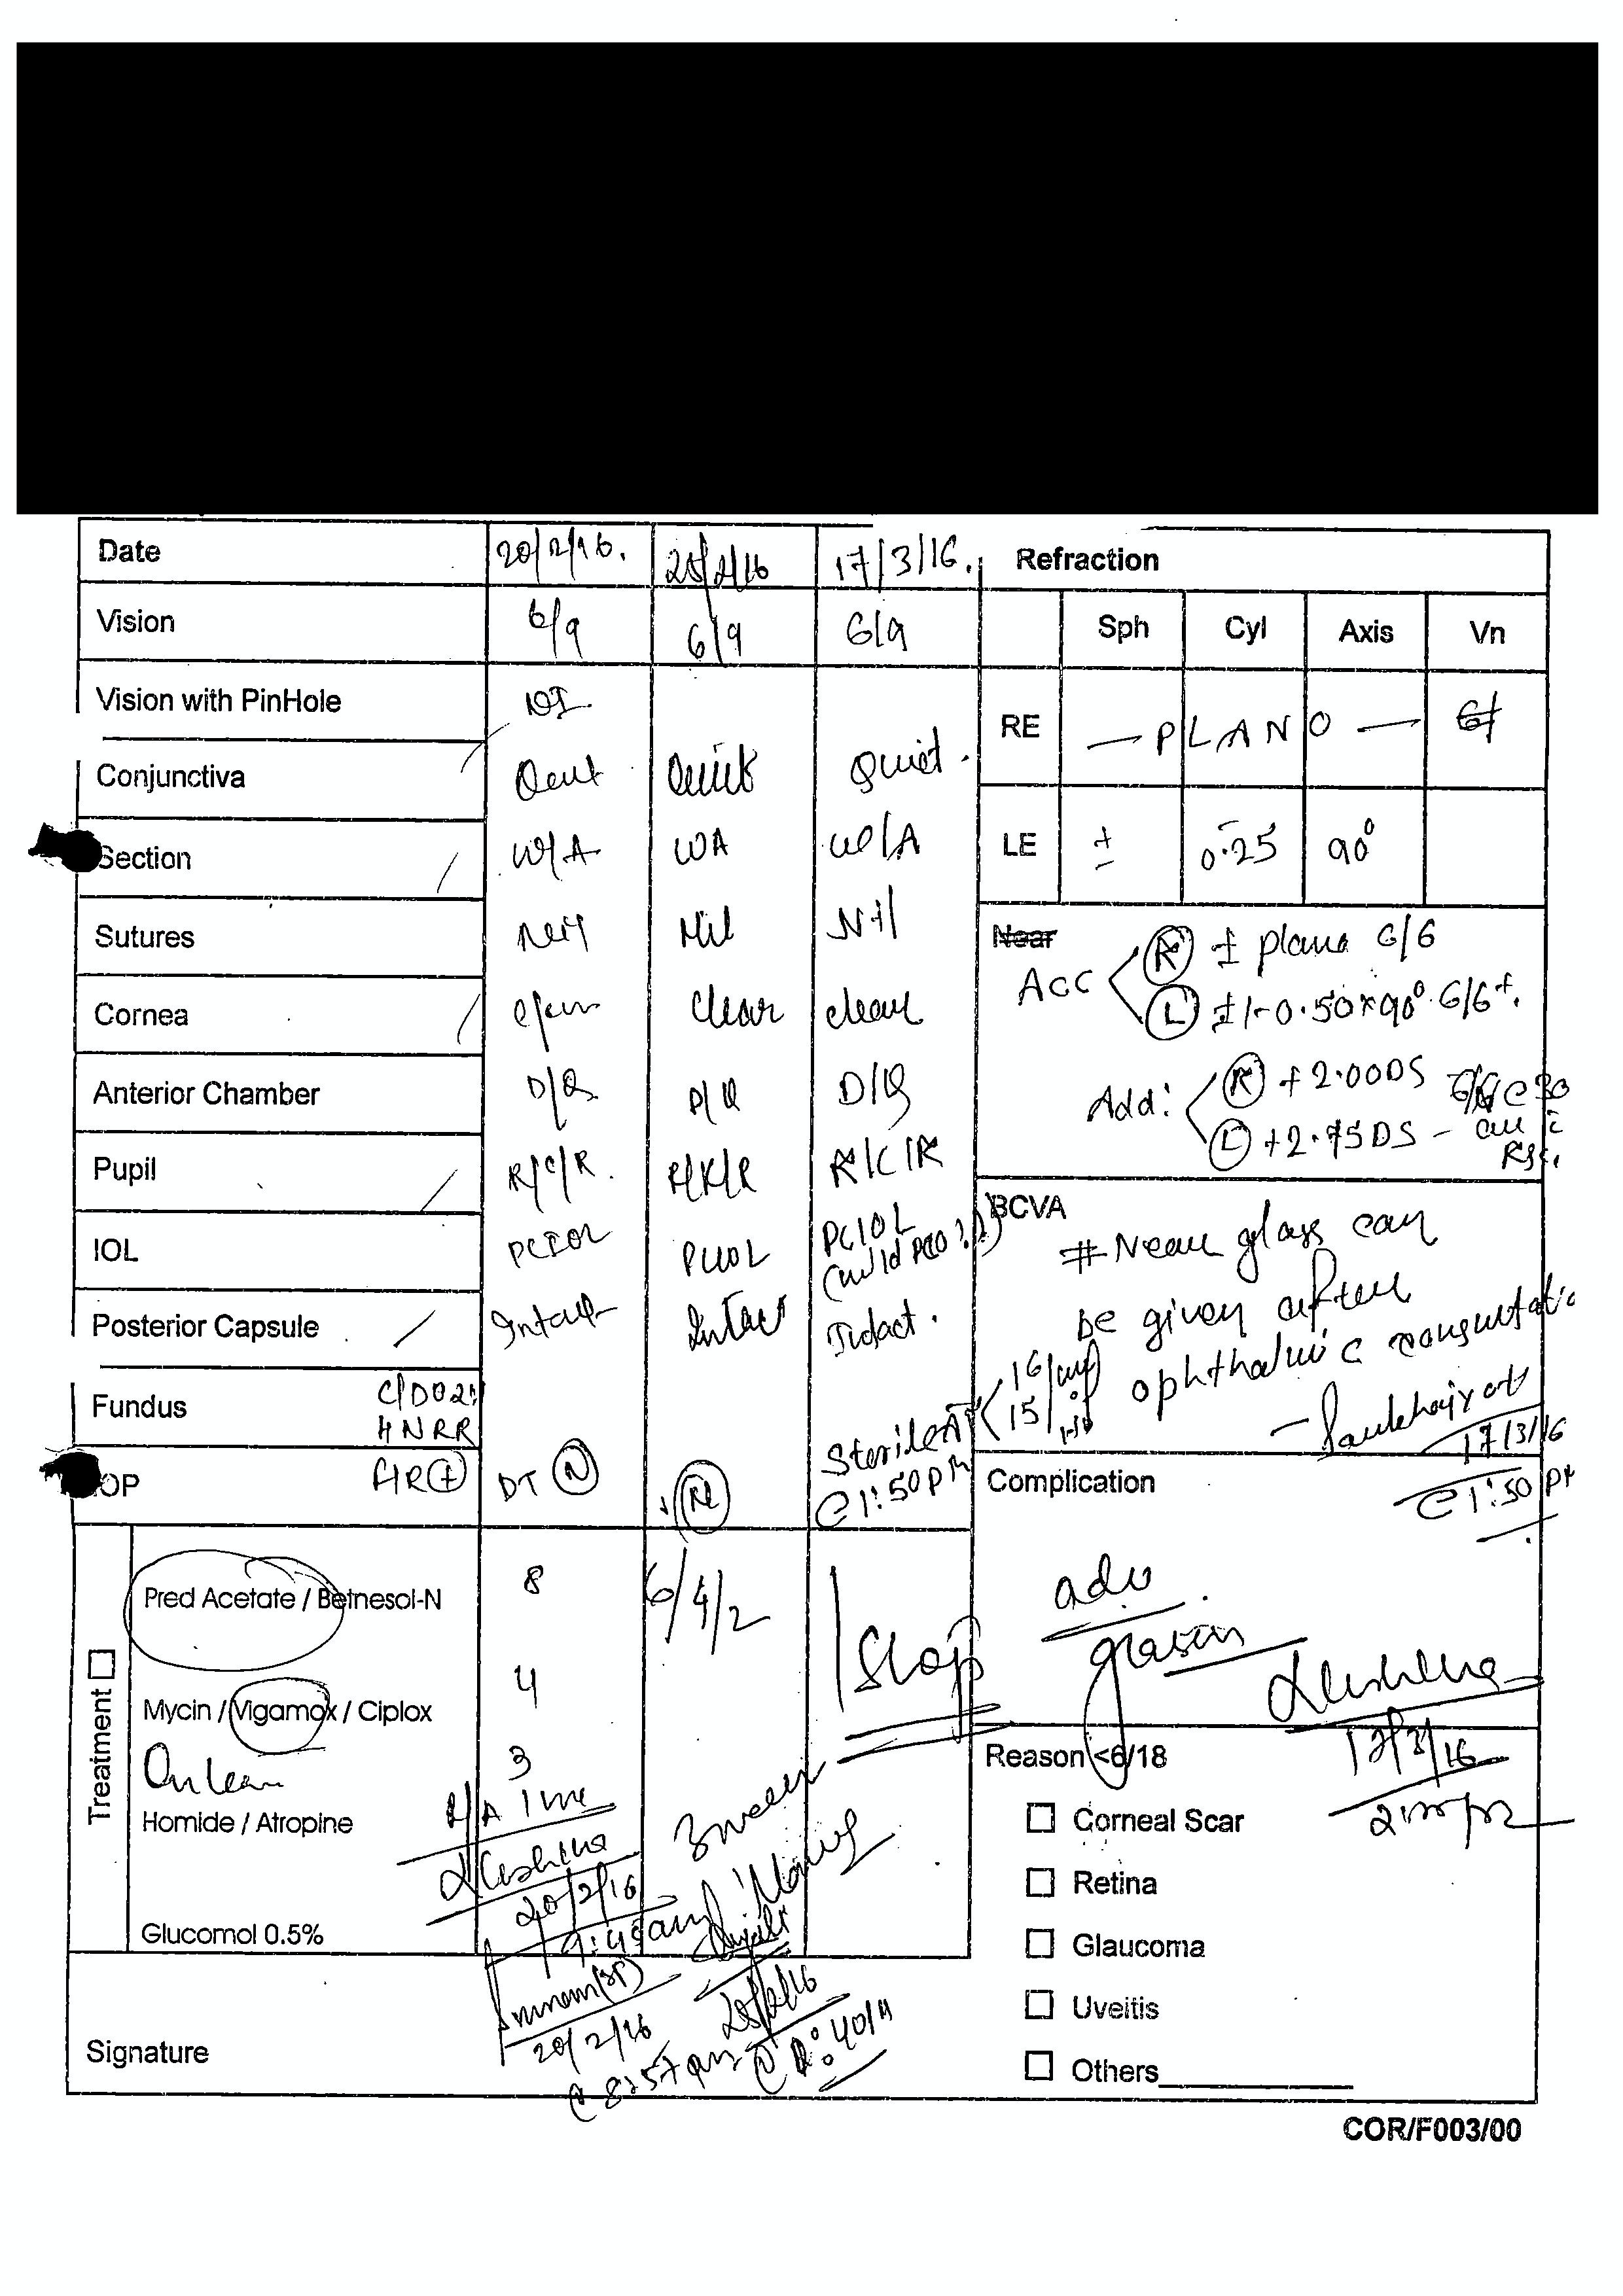 Date 20/2/16. 25/2/16 17/3/16. Refraction
Vision 6/9 6/9 6/9 Sph Cyl Axis Vn
Vision with PinHole NI
RE — PLANO — 6/
Conjunctiva Quiet Quiet Quiet.
Section W/A WA W/A LE ± 0.25 90°
Sutures Nil Nil Nil
Near
Acc R ± plano 6/6
L ±/-0.50x90° 6/6+.
Cornea clear Clear clear
Anterior Chamber D/Q D/Q D/Q
Add: R +2.00DS
L +2.75DS –
Pupil R/C/R. R/R/R R/C/R
IOL PCIOL PCIOL PCIOL
(mild PCO ??)
BCVA
# Near glass can
be given after
ophthalmic consultatio
17/3/16
@ 1:50 PM
Posterior Capsule Intact Intact Intact.
Fundus C/D 0.2:1
HNRR
FR+
IOP DT N N
@ 1:50 PM
16
15
Complication
adv
17/3/16
Treatment
Pred Acetate / Betnesol-N 8 6/4/2 Stop
Mycin / Vigamox / Ciplox 4
3
Homide / Atropine
20/2/16
9:45am
3 week
Glucomol 0.5%
Signature
20/2/16
@ 8:57 am
25/2/16
Reason <6/18
Corneal Scar
Retina
Glaucoma
Uveitis
Others
COR/F003/00